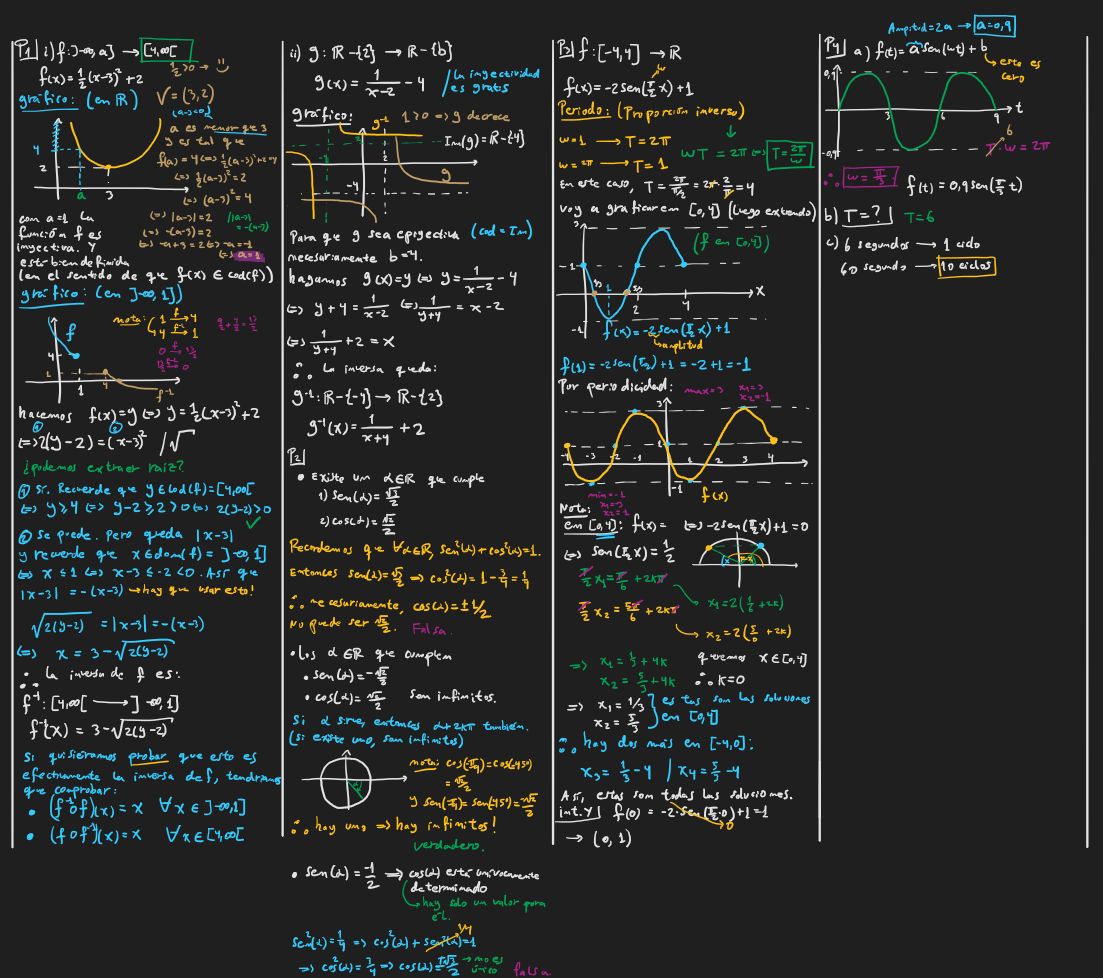 P1 i) f: ]-∞, a] → [4,∞[
f(x) = 1/2 (x-3)² + 2
1/2 > 0 →
gráfico: (en ℝ)
V = (3,2)
(a->=0)
4
2
a
3
a es menor que 3
y es tal que
f(a) = 4 <=> 1/2(a-3)²+2=4
<=> 1/2(a-3)² = 2
<=> (a-3)² = 4
<=> |a-3| = 2
/|a-3| = -(a-3)
<=> -(a-3) = 2
<=> -a+3 = 2 <=> -a = -1
<=> a = 1
con a=1 la
función f es
inyectiva. Y
está bien definida
(en el sentido de que f(x) ∈ cod(f))
gráfico: (en ]-∞, 1])
f
4
1
1
4
f⁻¹
nota: 1 f→ 4
4 f⁻¹→ 1
9/2 + 4/2 = 13/2
0 f→ 13/2
13/2 f⁻¹→ 0
hacemos f(x)=y <=> y = 1/2(x-3)² + 2
<=> 2(y-2) = (x-3)² /√
¿podemos extraer raíz?
① Sí. Recuerde que y ∈ cod(f) = [4,∞[
<=> y ≥ 4 <=> y-2 ≥ 2 > 0 <=> 2(y-2) > 0
② Se puede. Pero queda |x-3|
y recuerde que x ∈ dom(f) = ]-∞, 1]
<=> x ≤ 1 <=> x-3 ≤ -2 < 0. Así que
|x-3| = -(x-3) → hay que usar esto!
√2(y-2) = |x-3| = -(x-3)
<=> x = 3 - √2(y-2)
∴ La inversa de f es:
f⁻¹: [4,∞[ → ]-∞, 1]
f⁻¹(x) = 3 - √2(y-2)
Si quisiéramos probar que esto es
efectivamente la inversa de f, tendríamos
que comprobar:
• (f⁻¹ o f)(x) = x ∀x ∈ ]-∞, 1]
• (f o f⁻¹)(x) = x ∀x ∈ [4,∞[
ii) g: ℝ - {2} → ℝ - {b}
g(x) = 1/(x-2) - 4
/La inyectividad
es gratis
gráfico:
g⁻¹
1>0 => g decrece
Im(g) = ℝ-{4}
2
-4
-4
2
g
Para que g sea epiyectiva (cod = Im)
necesariamente b=4.
hagamos g(x)=y <=> y = 1/(x-2) - 4
<=> y+4 = 1/(x-2) <=> 1/(y+4) = x-2
<=> 1/(y+4) + 2 = x
∴ La inversa queda:
g⁻¹: ℝ-{-4} → ℝ-{2}
g⁻¹(x) = 1/(x+4) + 2
P2
• Existe un α∈ℝ que cumple
1) Sen(α) = √3/2
2) cos(α) = √2/2
Recordemos que ∀α∈ℝ, sen²(α) + cos²(α) = 1.
Entonces sen(α) = √3/2 => cos²(α) = 1 - 3/4 = 1/4
∴ necesariamente, cos(α) = ±1/2
No puede ser √2/2. Falsa.
• Los α∈ℝ que cumplen
• sen(α) = -√2/2
• cos(α) = √2/2 son infinitos.
Si α sirve, entonces α+2kπ también.
(si existe uno, son infinitos)
nota: cos(-π/4) = cos(-45°)
= √2/2
y sen(-π/4) = sen(-45°) = -√2/2
∴ hay uno => hay infinitos!
verdadero.
• sen(α) = -1/2 => cos(α) está unívocamente
determinado
↳ hay solo un valor para
él.
sen²(α) = 1/4 => cos²(α) + sen²(α) = 1
1/4
=> cos²(α) = 3/4 => cos(α) = ±√3/2 → no es
único
falsa
P3 f: [-4,4] → ℝ
f(x) = -2sen(π/2 x) + 1
w
Periodo: (Proporción inversa)
w=1 → T=2π
w=2π → T=1
wT = 2π <=> T = 2π/w
En este caso, T = 2π/(π/2) = 2π·2/π = 4
voy a graficar en [0,4] (luego extiendo)
3
(f en [0,4])
1
1
2
4
X
-1
f(x) = -2sen(π/2 x) + 1
↳ amplitud
f(1) = -2sen(π/2) + 1 = -2+1 = -1
Por periodicidad:
max=3
x₁=3
x₂=-1
3
-4 -3 -2 -1 1 2 3 4
-1
min=-1
x₁=-3
x₂=1
f(x)
Nota:
en [0,4]: f(x) = <=> -2sen(π/2 x) + 1 = 0
<=> sen(π/2 x) = 1/2
π/2 x₁ = π/6 + 2kπ
→ x₁ = 2(1/6 + 2k)
π/2 x₂ = 5π/6 + 2kπ
→ x₂ = 2(5/6 + 2k)
=> x₁ = 1/3 + 4k
x₂ = 5/3 + 4k
queremos x∈[0,4]
∴ k=0
=> x₁ = 1/3
x₂ = 5/3
estas son las soluciones
en [0,4]
∴ hay dos más en [-4,0]:
x₃ = 1/3 - 4 / x₄ = 5/3 - 4
Así, estas son todas las soluciones.
int. Y f(0) = -2·sen(π/2·0) + 1 = 1
0
→ (0, 1)
Amplitud = 2a → a=0,9
P4 a) f(t) = a sen(wt) + b
esto es
cero
0,9
-0,9
3
9
t
6
T·w = 2π
∴ w = π/3
f(t) = 0,9 sen(π/3 t)
b) T=? T=6
c) 6 segundos → 1 ciclo
60 segundo → 10 ciclos